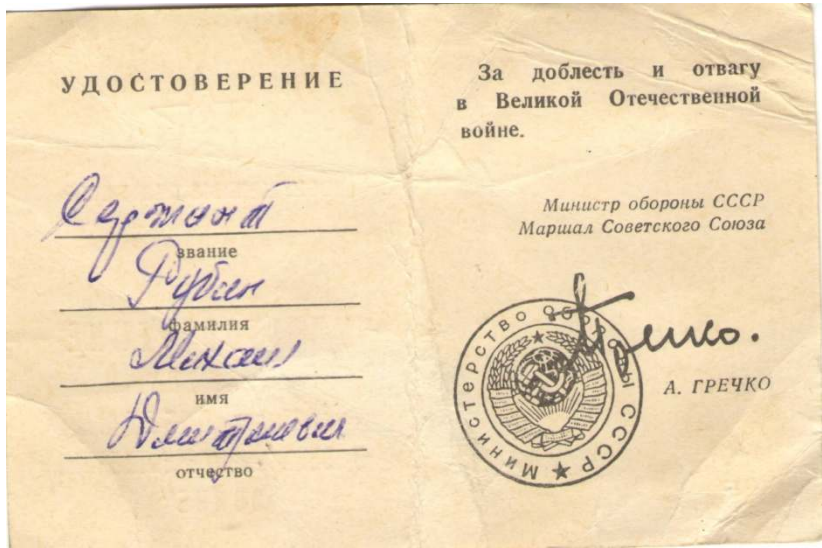 УДОСТОВЕРЕНИЕ
Сержант
звание
Рубан
фамилия
Михаил
имя
Дмитриевич
отчество
За доблесть и отвагу
в Великой Отечественной
войне.
Министр обороны СССР
Маршал Советского Союза
Гречко.
А. ГРЕЧКО
Министерство Обороны СССР